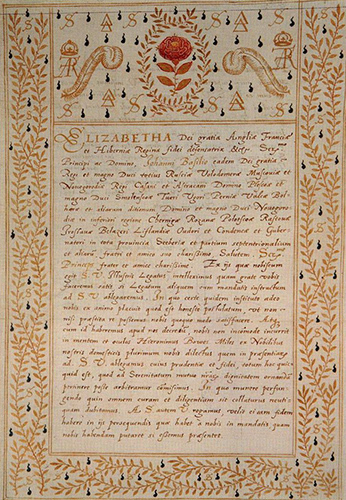 S A S A S
ELIZABETHA Dei gratia Angliæ Franciæ
et Hiberniæ Regina fidei defensatrix &c. Ser.mo
Principi ac Domino, Iohanni Basilio eadem Dei gratia
Regi et magno Duci totius Russiæ Volodomeræ Moscoviæ et
Novogrodiæ Regi Casani et Astracani Domino Plescoæ et
magno Duci Smolenscoæ Tueri Ugori Permiæ Valcæ Bol-
haræ et aliarum ditionum Domino et magno Duci Novogro-
diæ in inferiori regione Chernigæ Rezanæ Polotscoæ Rostovæ
Ierislavæ Belozeri Liflandiæ Oudori et Condenzæ et Guber-
natori in tota provincia Seeberiæ et partium septentrionalium
et aliarum fratri et amico suo charissimo Salutem. Ser.me
Princeps frater et amice charissime. Ex ijs quæ nobiscum
egit S. V. Illustris Legatus, intelleximus quam grate vobis
facturæ si Legatum aliquem cum mandatis instructum
ad S. V. allegaremus. In quo certe quidem instituto adeo
nobis ex animo placuit quod est honeste postulatum, ut non
nisi præstita re possemus nobis quoquo modo satisfacere. Atq
cum id haberemus apud nos decretum nobis non incommode incurrit
in mentem et oculos Hieronimus Bowes Miles ex Nobilibus
nostris domesticis plurimum nobis dilectus quem in præsentiam
S. V. allegamus cuius prudentiæ et fidei, totum hoc quic-
quid est, quod ad Serenitatum mutuo dignitatem ornandam
pertinere posse arbitramur commisimus. In quo munere perfun-
gendo quin omnem curam et diligentiam sit collaturus neuti-
quam dubitamus. A S. autem V. rogamus velit ei eam fidem
habere in ijs persequendis quæ habet a nobis in mandatis quam
nobis habendam putaret si essemus præsentes.